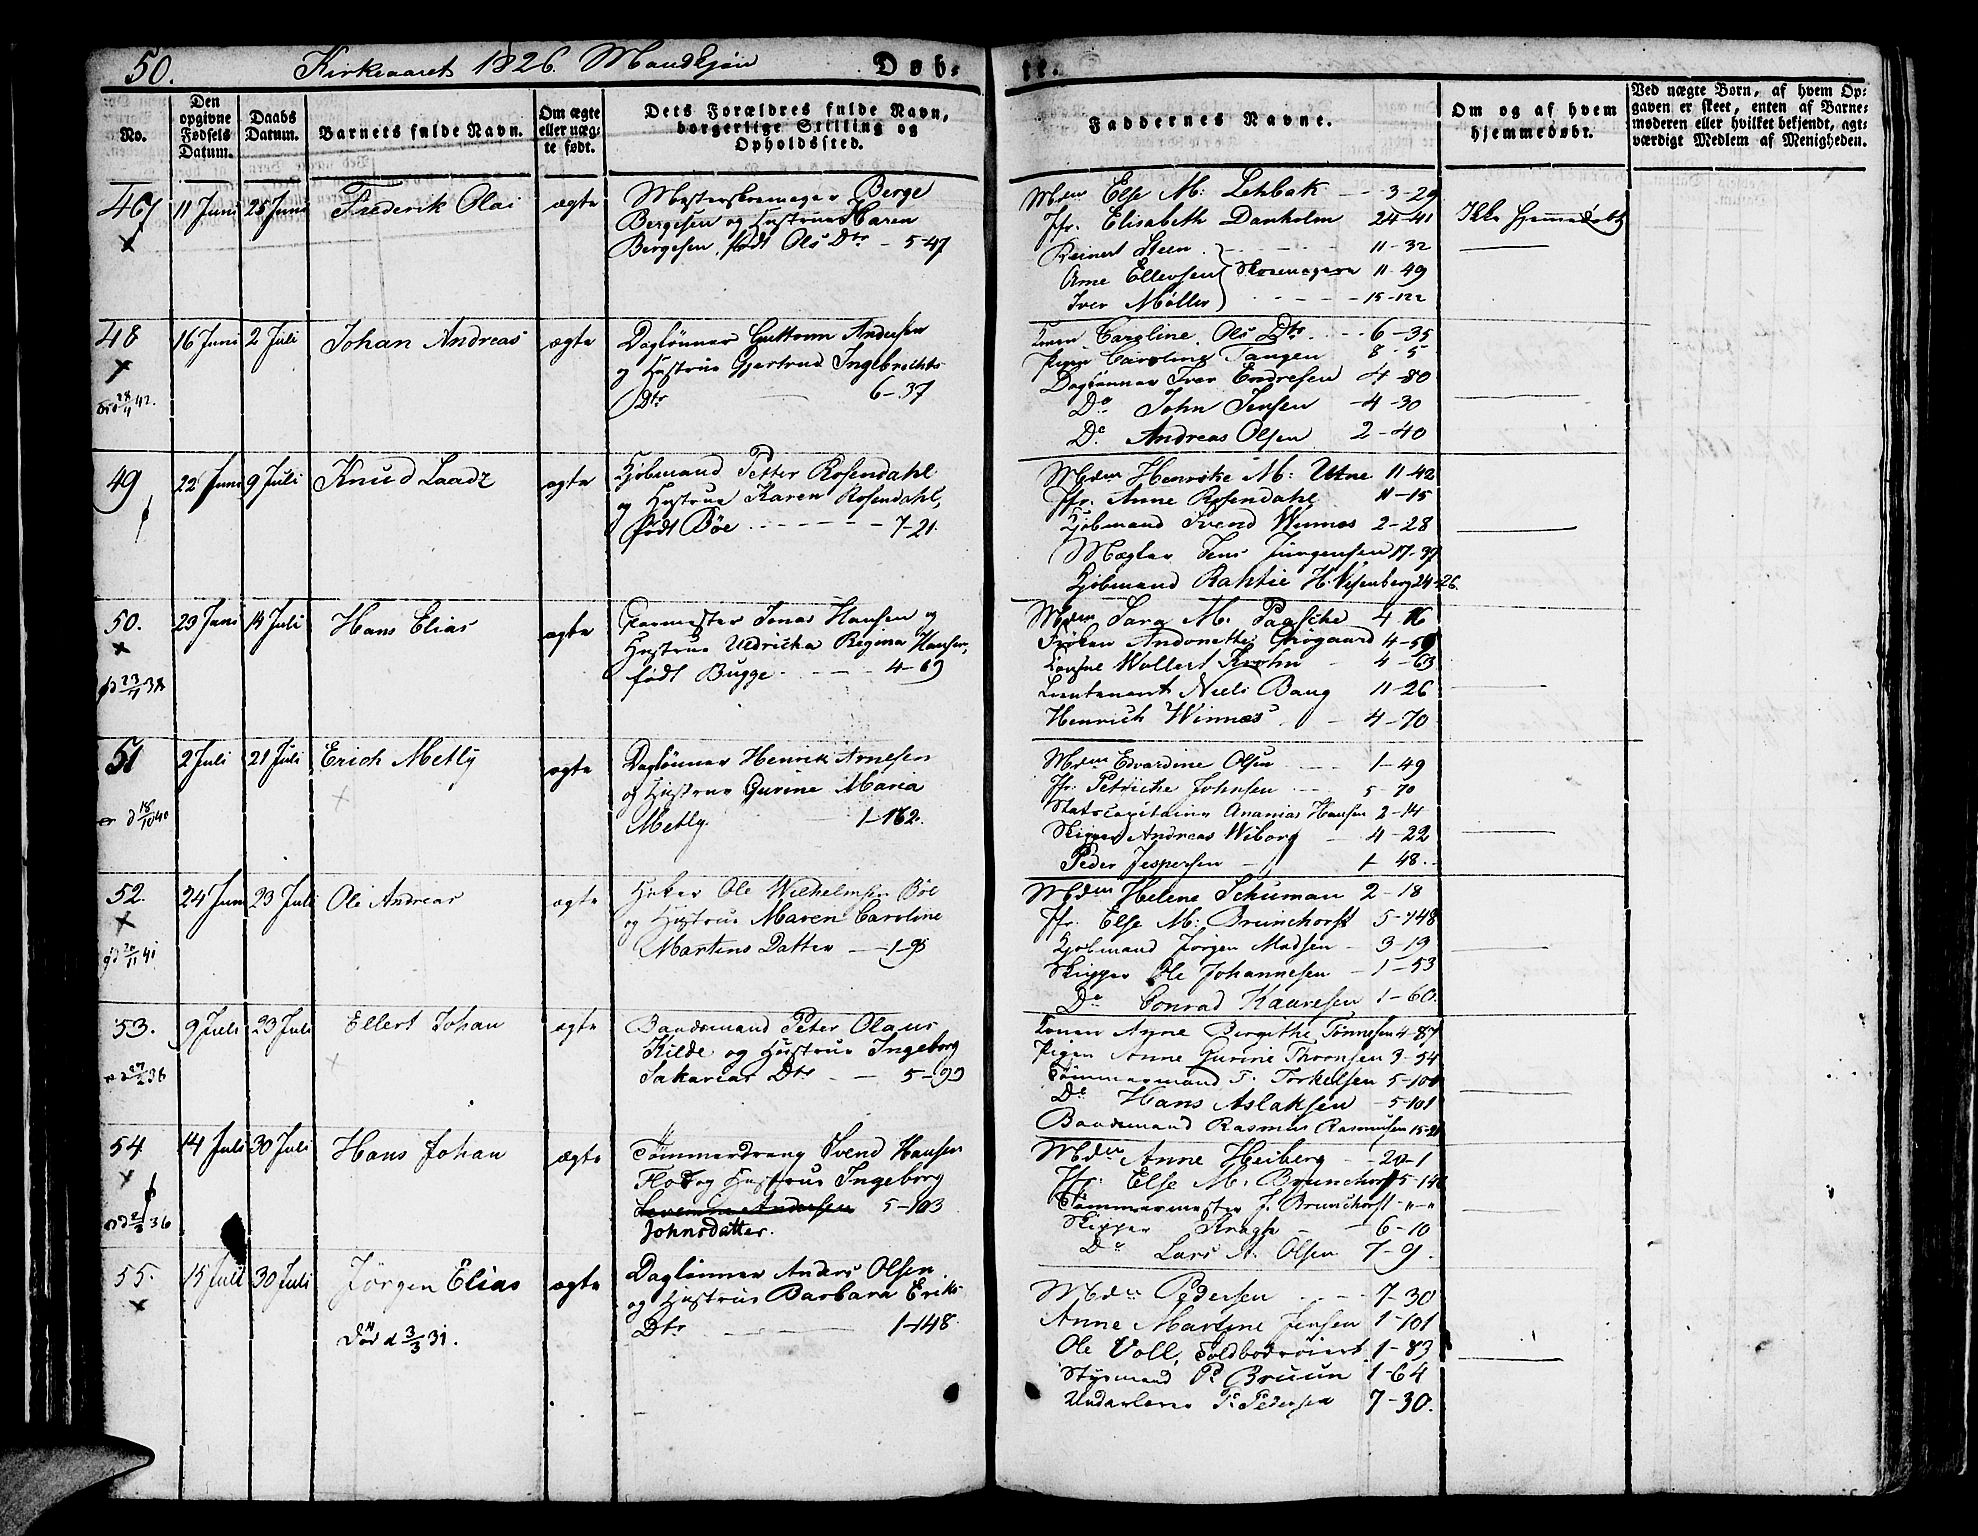 50. Kirkeaaret 1826. Mandkjön Døb-
te.
No.
Den opgivne Fødsels Datum.
Daabs Datum.
Barnets fulde Navn.
Om ægte eller uægte født.
Dets Forældres fulde Navn, borgerlige Stilling og Opholdssted.
Faddernes Navne.
Om og af hvem hjemmedøbt.
Ved uægte Børn, af hvem Opgaven er skeet, enten af Barnemoderen eller hvilket bekjendt, agtværdigt Medlem af Menigheden.
47 11 Juni 25 Juni Frederik Olai ægte
Mesterskomager Berge
Bergesen og Hustrue Karen
Bergesen, født Ols Dtr - 5-47
Mdm Else M: Lehbak - 3-29
Jfr. Elisabeth Danholm 24-41
Reinert Steen 11-32
Arne Ellevsen Skomagere 11-49
Iver Møller 15-122
Ikke hjemmedøbt
48 16 Juni 2 Juli Johan Andreas ægte
Daglönner Guttorm Andersen
og Hustrue Gjertrud Ingebrechts
Dtr 6-37
Konen Caroline Ols Dtr 6-35
Pigen Caroline Tangen 8-5
Daglönner Iver Endresen 4-80
Do John Jensen 4-30
Do Andreas Olsen 2-40
49 22 Juni 9 Juli Knud Laadz ægte
Kjøbmand Petter Rosendahl
og Hustrue Karen Rosendahl,
født Böe 7-21
Mdm Henrike M: Utne 11-42
Jfr. Anne Rosendahl 11-15
Kjøbmand Svend Winnes 2-28
Mægler Jens Jürgensen 17-37
Kjøbmand Rahtie H. Visenberg 24-26
50. 29 Juni 14 Juli Hans Elias ægte
Garmester Jonas Hansen og
Hustrue Uldricka Regina Hansen,
født Bugge 4-69
Mdm Sara M. Paasche 4 16
Fröken Andonette Grögaard 4-59
Consul Wollert Krohn 4-63
Lieutenant Niels Bang 11-26
Henrich Winnes 4-70
51 2 Juli 21 Juli Erich Metly ægte
d 18/10 40
Daglönner Henrik Arnesen
og Hustrue Gurine Maria
Metly 1-162
Mdm Edvardine Olsen 1-49
Jfr. Petriche Johnsen 5-70
Statscapitain Ananias Hansen 2-14
Skipper Andreas Wiborg 4-22
Peder Jespersen 1-48
52. 24 Juni 23 Juli Ole Andreas ægte
Høker Ole Wilhelmsen Böe
og Hustrue Maren Caroline
Martins Datter 1-95
Mdm Helene Schuman 2-18
Jfr. Else M: Brunchorst 5-148
Kjøbmand Jørgen Madsen 3-13
Skipper Ole Johannesen 1-53
Do Conrad Kaaresen 1-60
53. 9 Juli 23 Juli Ellert Johan ægte
Baadsmand Peter Olaus
Kilde og Hustrue Ingeborg
Sakarias Dtr 5-99
Konen Anne Birgithe Tönnesen 4-87
Pigen Anne Gurine Thronsen 3-54
Tömmermand T. Torkelsen 5-100
Do Hans Aslaksen 5-101
Baadsmand Rasmus Rasmusen 15-21
54 14 Juli 30 Juli Hans Johan ægte
Tömmerdreng Svend Hansen
Flod og Hustrue Ingeborg
5-103
Johnsdatter.
Mdm Anne Heiberg 20-1
Jfr. Else M. Brunchorst 5-148
Tömmermester J. Brunchorst "-"
Skipper Kragh 6-10
Do Lars A. Olsen 7-9
55. 15 Juli 30 Juli Jørgen Elias ægte
Död d 3/3 31.
Daglönner Anders Olsen
og Hustrue Barbara Eriks
Dtr 1-148
Mdm Pedersen 7-30
Anne Martine Jensen 1-101
Ole Voll, Toldbodröiert 1-83
Styrmand P. Bruun 1-64
T. Pedersen 7-30.